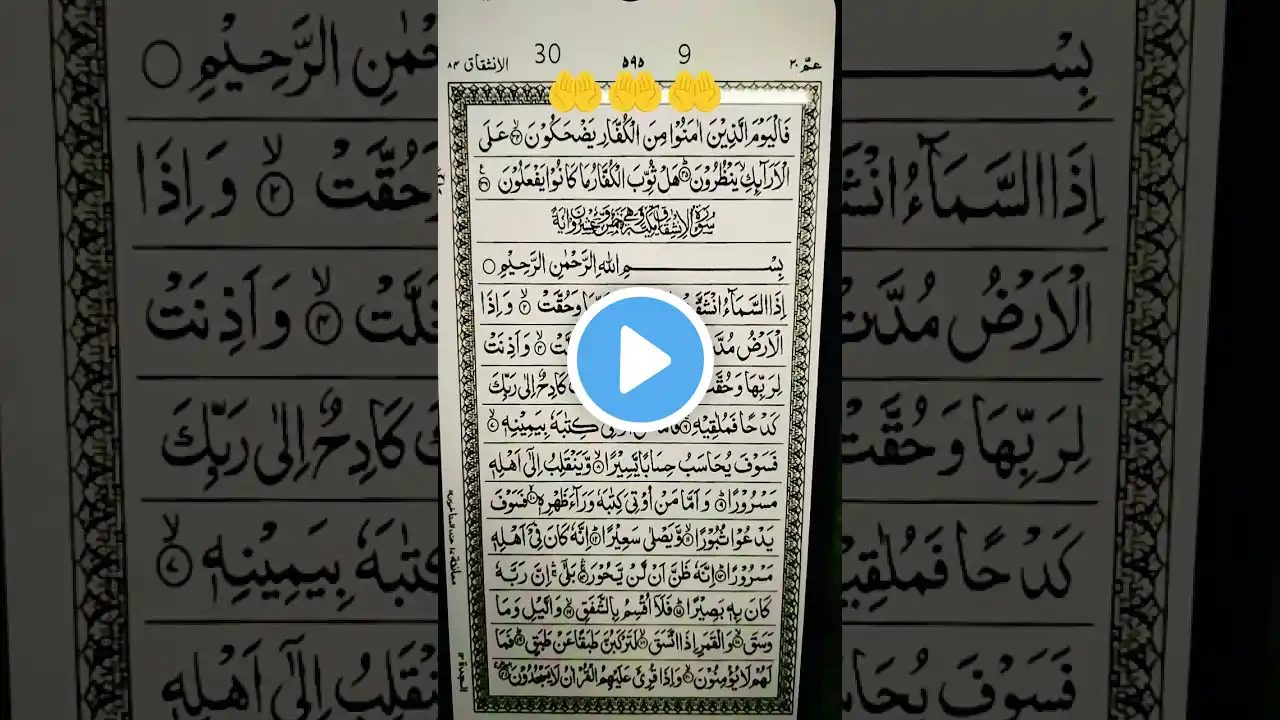 الانشقاق ٨٤ 30 ٥٩٥ 9 عمّ ٣٠
فَالْيَوْمَ الَّذِيْنَ اٰمَنُوْا مِنَ الْكُفَّارِ يَضْحَكُوْنَ ۙ۝٣٤ عَلَى
الْاَرَآىِٕكِ ۙ يَنْظُرُوْنَ ؕ۝٣٥ هَلْ ثُوِّبَ الْكُفَّارُ مَا كَانُوْا يَفْعَلُوْنَ ۝٣٦
سُوْرَةُ الْاِنْشِقَاقِ مَكِّيَّةٌ وَّهِيَ خَمْسٌ وَّعِشْرُوْنَ اٰيَةً
بِسْمِ اللّٰهِ الرَّحْمٰنِ الرَّحِيْمِ ○
اِذَا السَّمَآءُ انْشَقَّتْ وَحُقَّتْ ۙ۝٢ وَاِذَا
الْاَرْضُ مُدَّتْ ۙ۝٤ وَاَذِنَتْ
لِرَبِّهَا وَحُقَّتْ كَادِحٌ اِلٰى رَبِّكَ
كَدْحًا فَمُلٰقِيْهِ ۚ۝٦ كِتٰبَهٗ بِيَمِيْنِهٖ ۙ۝٧
فَسَوْفَ يُحَاسَبُ حِسَابًا يَّسِيْرًا ۙ۝٨ وَّيَنْقَلِبُ اِلٰۤى اَهْلِهٖ
مَسْرُوْرًا ؕ۝٩ وَاَمَّا مَنْ اُوْتِيَ كِتٰبَهٗ وَرَآءَ ظَهْرِهٖ ۙ۝١٠ فَسَوْفَ
يَدْعُوْا ثُبُوْرًا ۙ۝١١ وَّيَصْلٰى سَعِيْرًا ؕ۝١٢ اِنَّهٗ كَانَ فِيْۤ اَهْلِهٖ
مَسْرُوْرًا ؕ۝١٣ اِنَّهٗ ظَنَّ اَنْ لَّنْ يَّحُوْرَ ۚ۝١٤ بَلٰۤى ۚ اِنَّ رَبَّهٗ
كَانَ بِهٖ بَصِيْرًا ؕ۝١٥ فَلَاۤ اُقْسِمُ بِالشَّفَقِ ۙ۝١٦ وَالَّيْلِ وَمَا
وَسَقَ ۙ۝١٧ وَالْقَمَرِ اِذَا اتَّسَقَ ۙ۝١٨ لَتَرْكَبُنَّ طَبَقًا عَنْ طَبَقٍ ؕ۝١٩ فَمَا
لَهُمْ لَا يُؤْمِنُوْنَ ۙ۝٢٠ وَاِذَا قُرِئَ عَلَيْهِمُ الْقُرْاٰنُ لَا يَسْجُدُوْنَ ؕ۝٢١